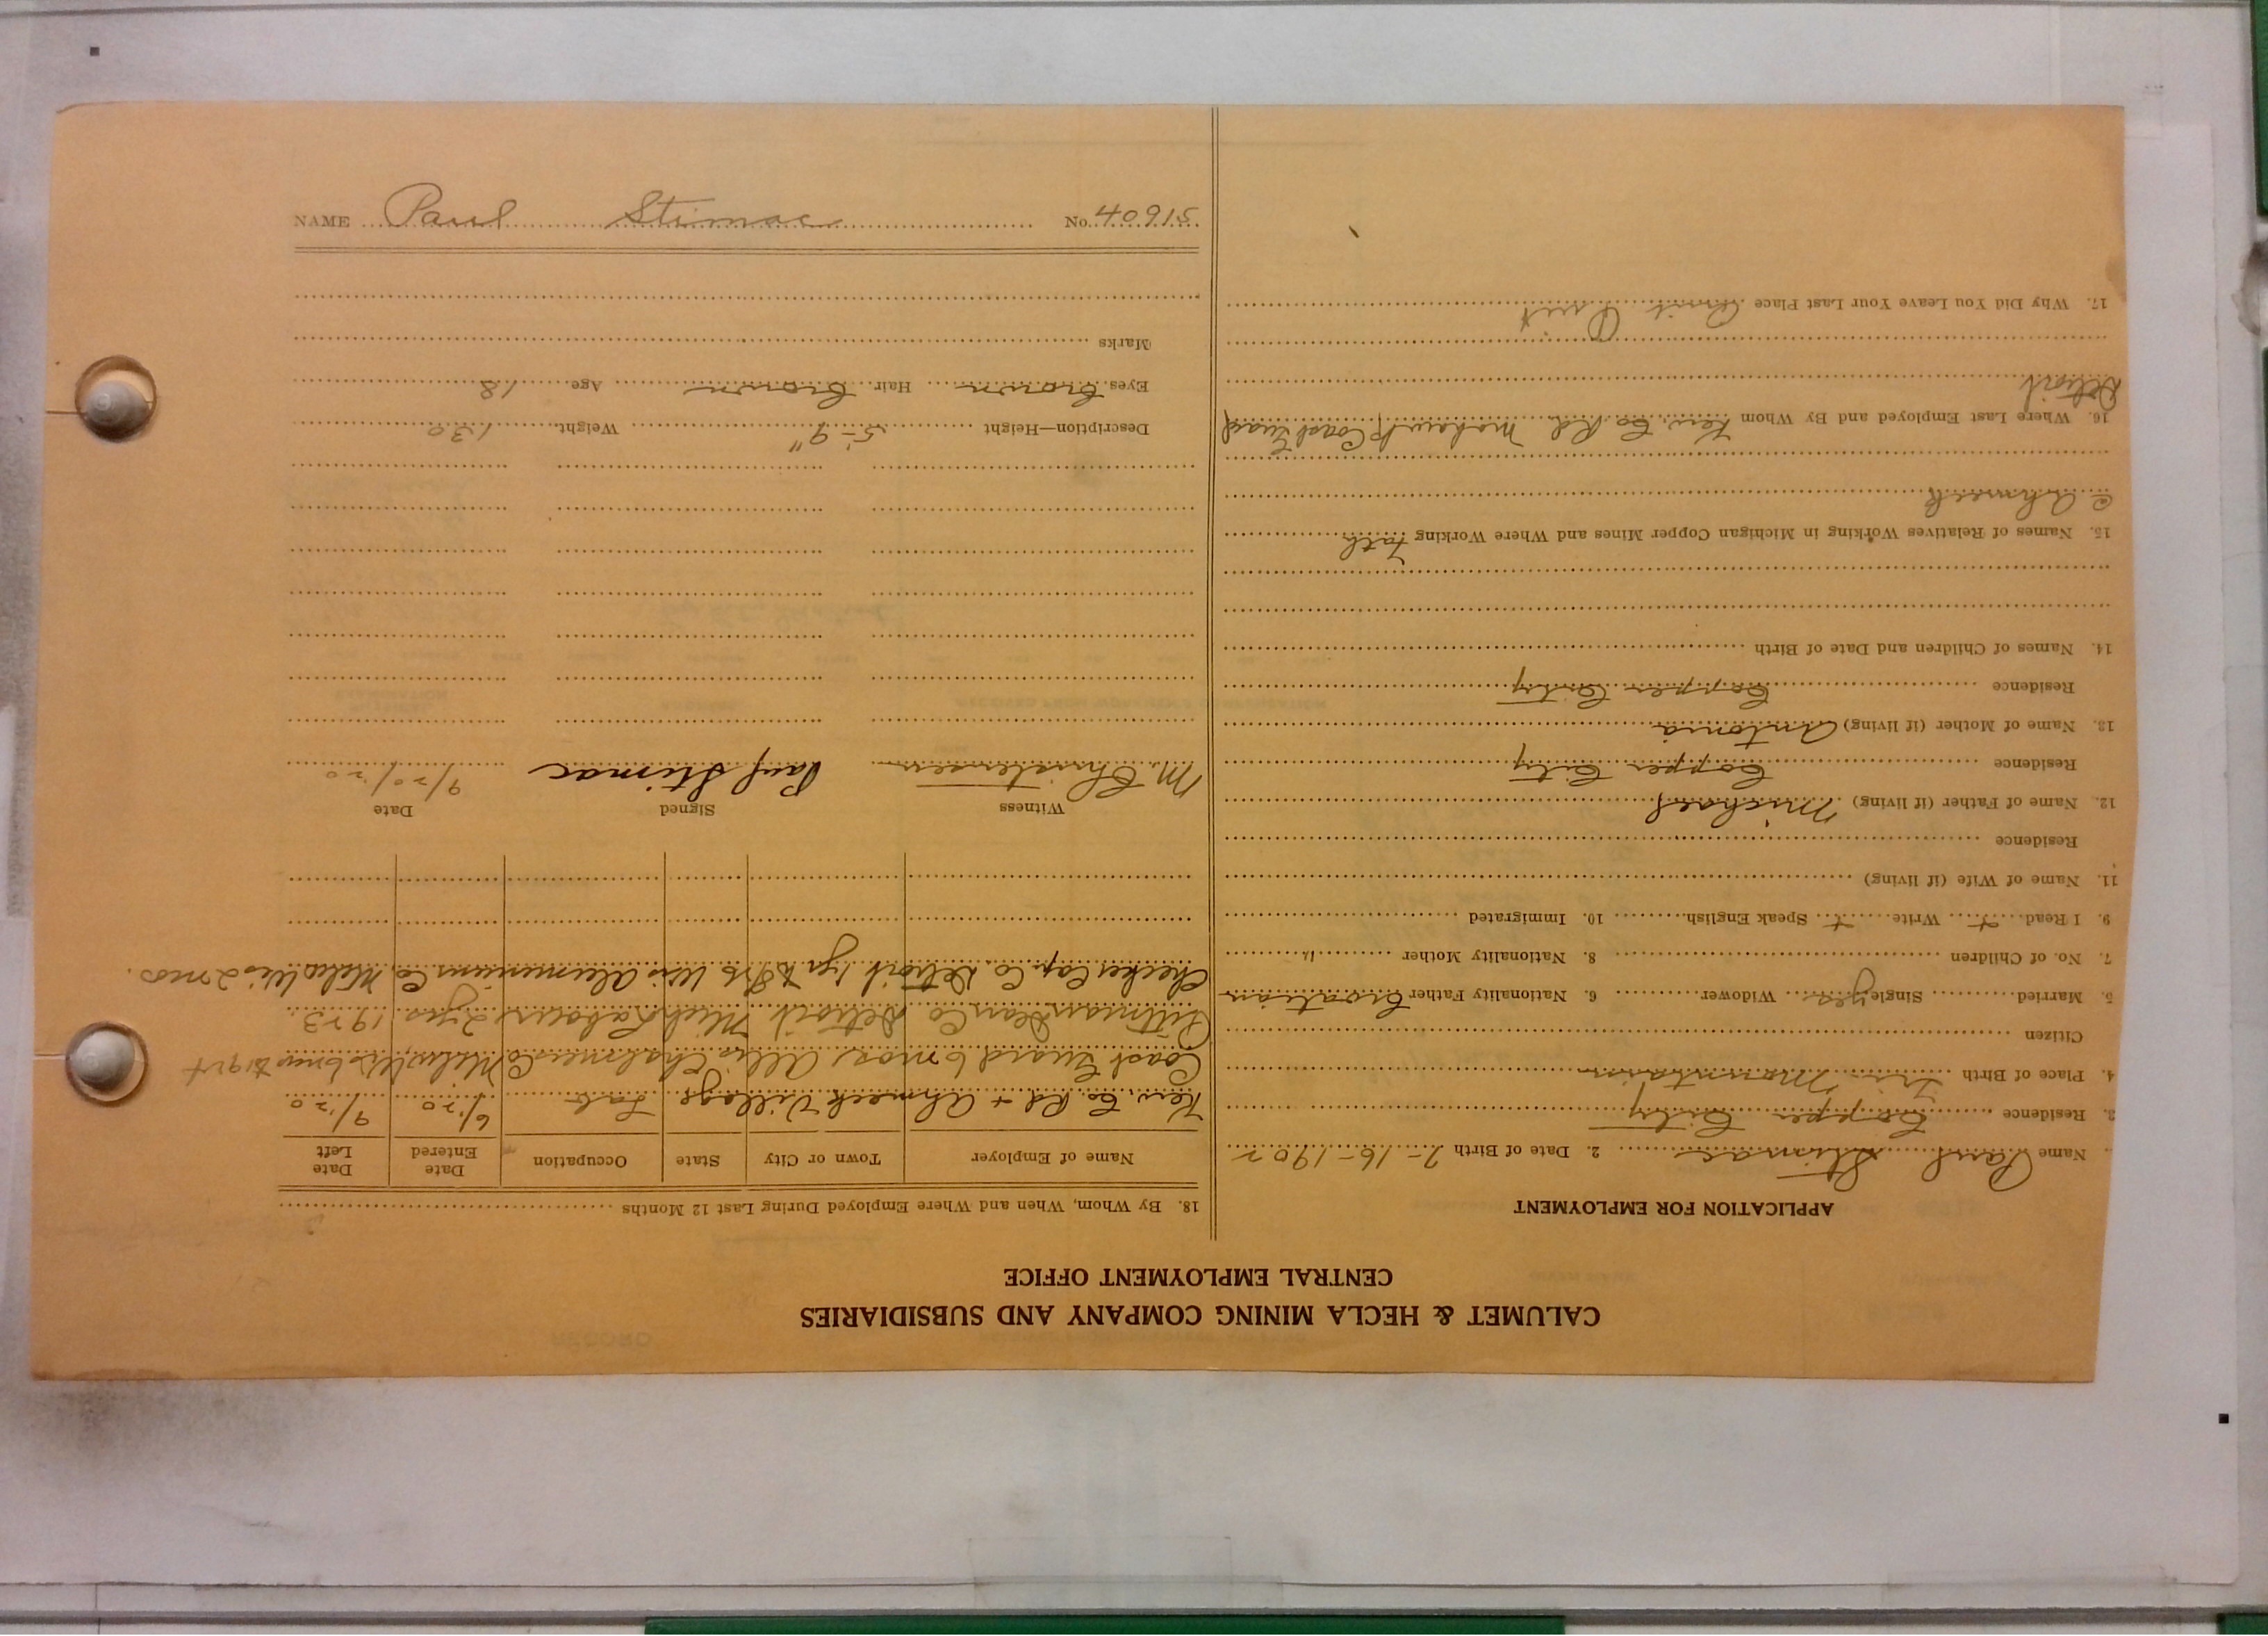 CALUMET & HECLA MINING COMPANY AND SUBSIDIARIES
CENTRAL EMPLOYMENT OFFICE
APPLICATION FOR EMPLOYMENT
Name Paul Stimac 2. Date of Birth 7-16-1902
3. Residence Copper City
4. Place of Birth Tri Mountain
Citizen
5. Married Single yes Widower 6. Nationality Father Croatian
7. No. of Children 8. Nationality Mother "
9. I Read + Write + Speak English 10. Immigrated
11. Name of Wife (if living)
Residence
12. Name of Father (if living) Michael
Residence Copper City
13. Name of Mother (if living) Antonia
Residence Copper City
14. Names of Children and Date of Birth
15. Names of Relatives Working in Michigan Copper Mines and Where Working Fath
@ Ahmeek
16. Where Last Employed and By Whom Kew. Co. Rd. Mohawk, Coast Guard
Detroit
17. Why Did You Leave Your Last Place Quit
Quit
18. By Whom, When and Where Employed During Last 12 Months
Name of Employer Town or City State Occupation Date Entered Date Left
Kew. Co. Rd + Ahmeek Village Lab 6/20 9/20
Coast Guard 6 mos. Allis Chalmers Co Milw. Wis 6 mos
Pittman Dean Co Detroit Mich Labour 2 yrs 1923.
Checker Cap. Co. Detroit 1 yr Wis Aluminum Co. Wis 2 mos.
Witness Signed Date
M. Christensen Paul Stimac 9/20/20
Description—Height 5-9" Weight 130
Eyes brown Hair brown Age 18
Marks
NAME Paul Stimac No. 40915
RECORD